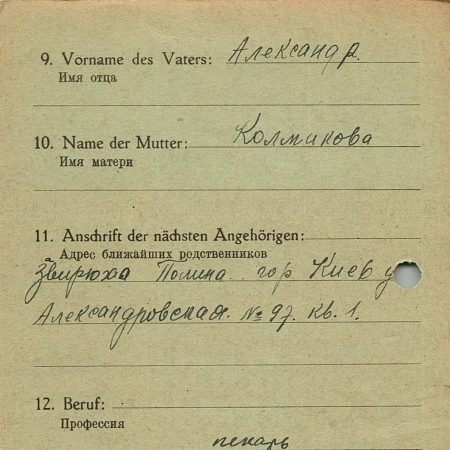 9. Vorname des Vaters: Александр.
Имя отца
10. Name der Mutter: Колмикова
Имя матери
11. Anschrift der nächsten Angehörigen:
Адрес ближайших родственников
Звирюха Полина. гор Киев у
Александровская. № 97. кв. 1.
12. Beruf:
Профессия
пекарь